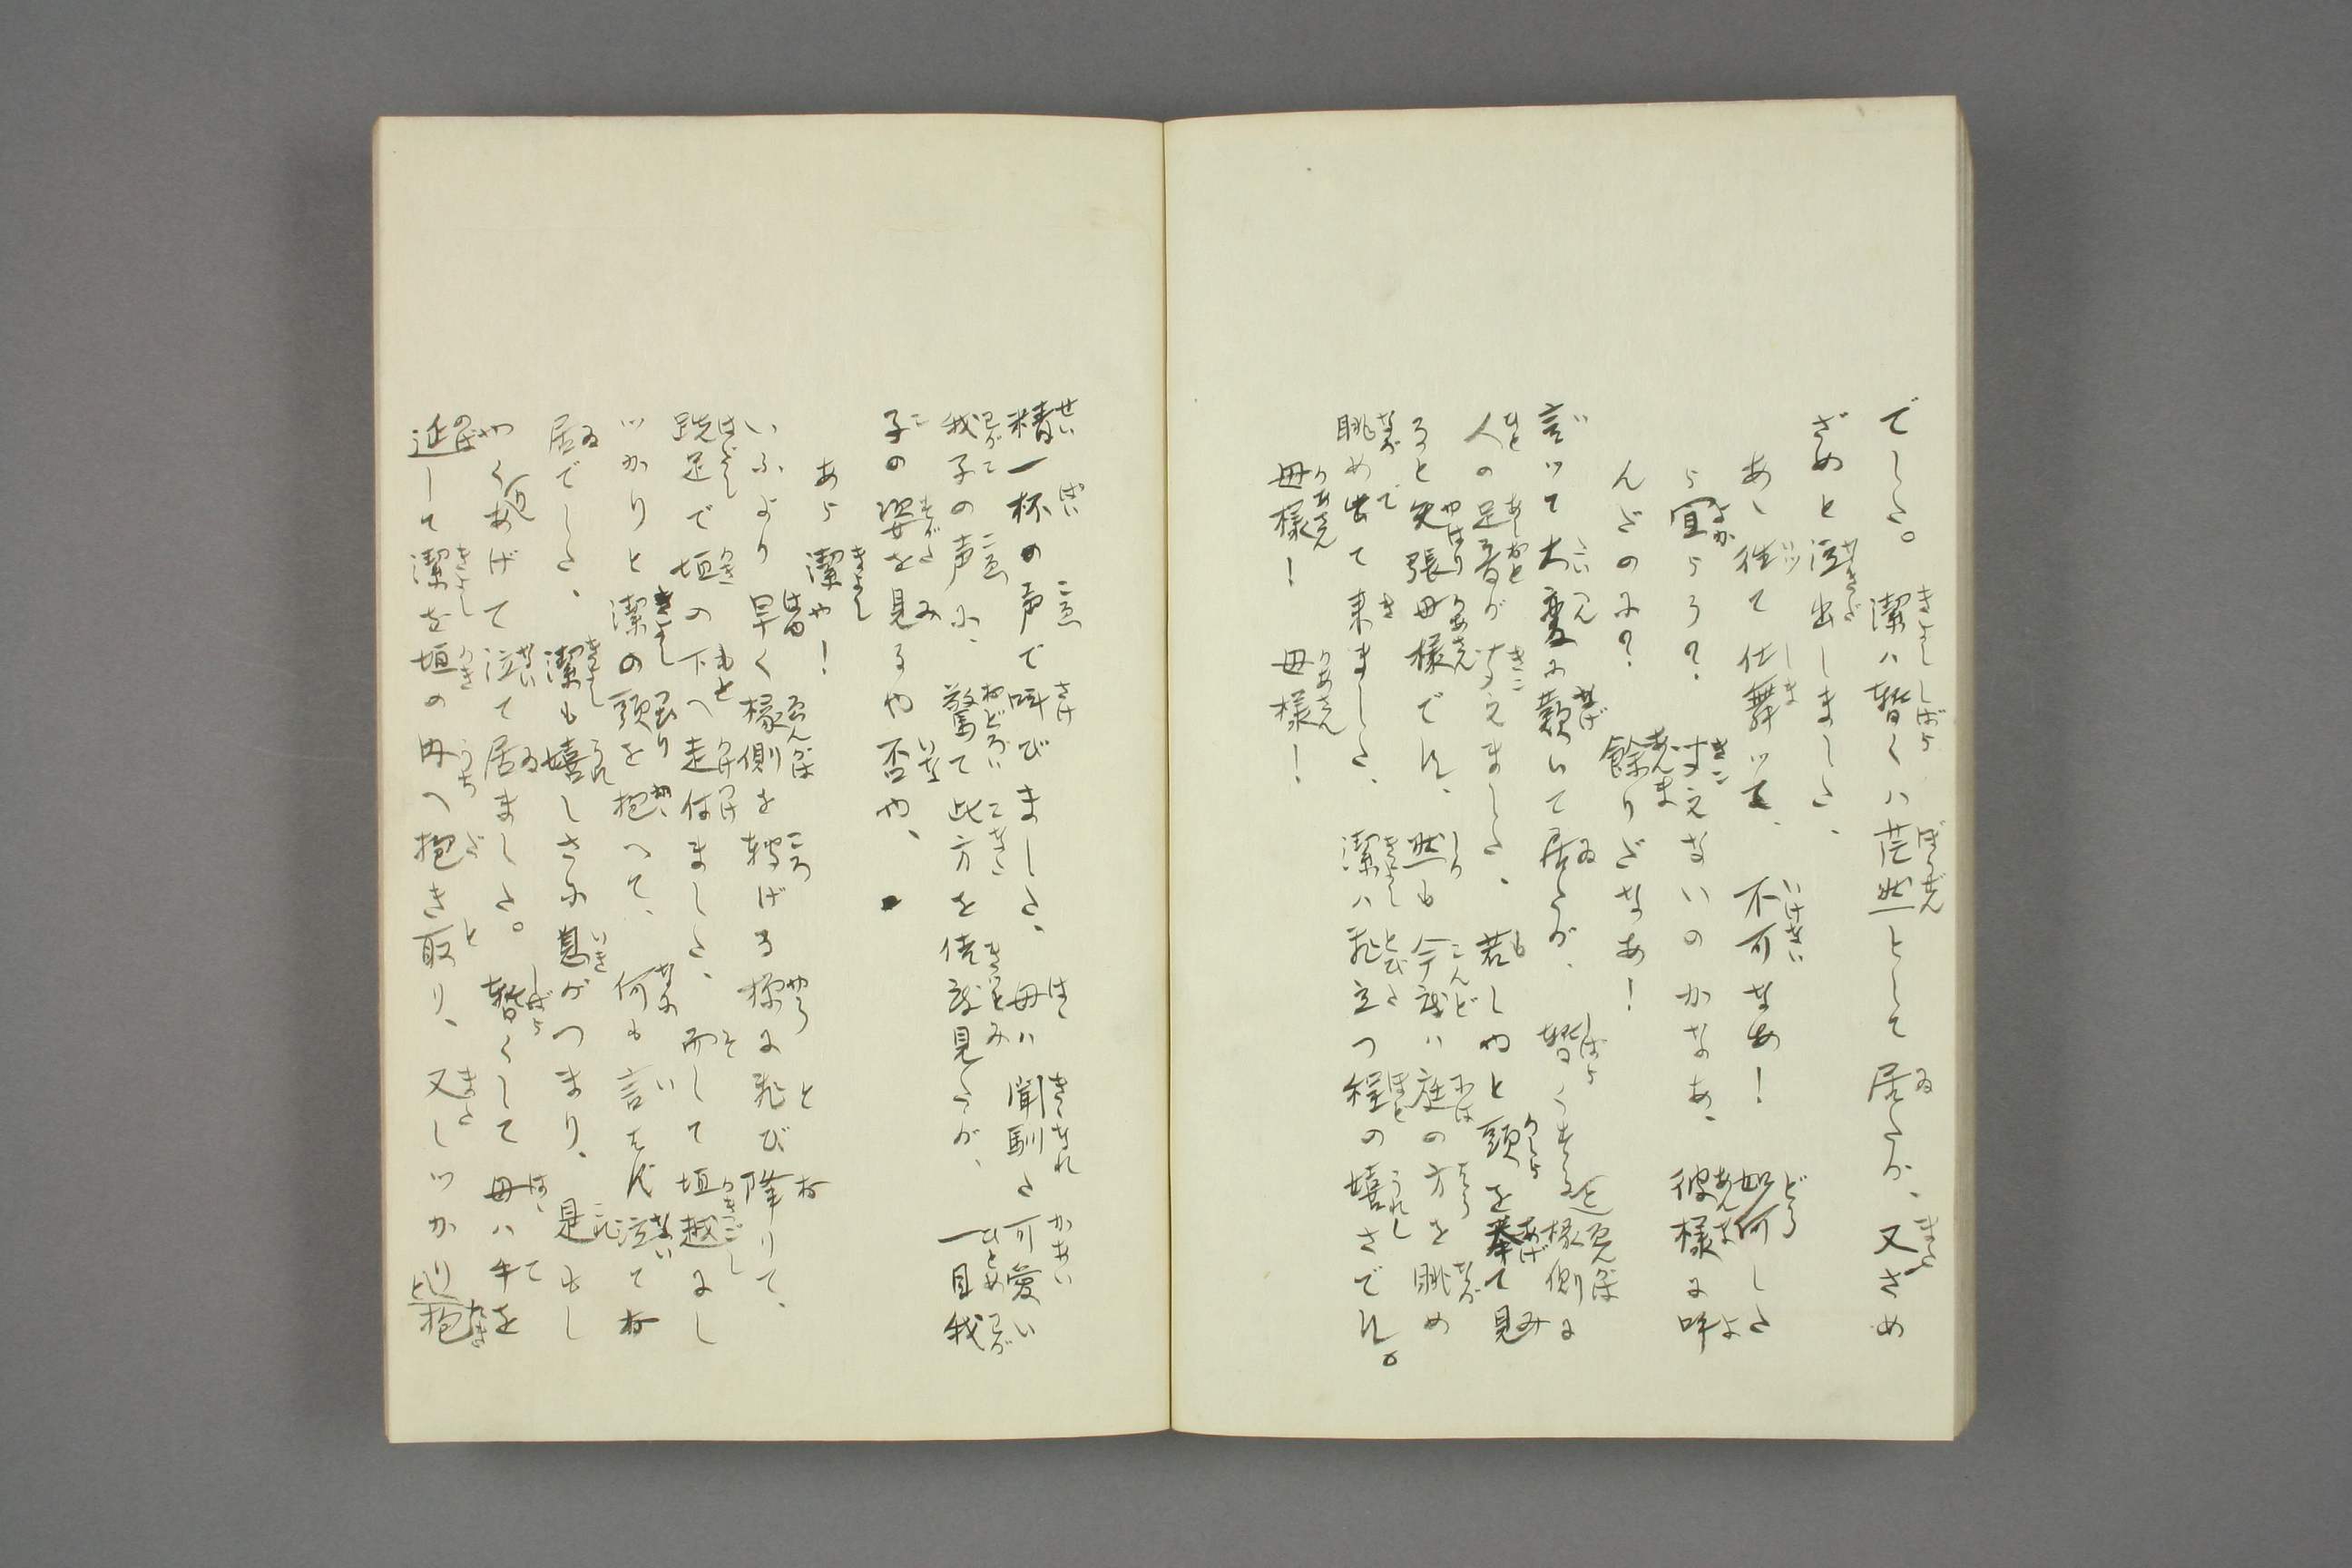 でした。潔ハ暫くハ茫然として居たが、又さめ
ざめと泣出しました、
あゝ往て仕舞ツて、不可なあ！如何した
ら宜らう？聞えないのかなあ、彼様に呼
んだのに？餘りだなあ！
言ツて大変に歎いて居たが、暫くすると縁側に
人の足音が聞えました、若しやと頭を挙て見
ると矢張母様です、然も今度ハ庭の方を眺め
眺め出て来ました、潔ハ飛立つ程の嬉さです。
母様！母様！
精一杯の声で叫びました、母ハ聞馴た可愛い
我子の声に、驚て此方を屹度見たが、一目我
子の姿を見るや否や、
あら潔や！
いふより早く縁側を轉げる様に飛び降りて、
跣足で垣の下へ走付ました、而して垣越にし
ツかりと潔の頭を抱へて、何も言はず泣てお
居でした、潔も嬉しさに息がつまり、是もし
やくりあげて泣て居ました。暫くして母ハ手を
延して潔を垣の内へ抱き取り、又しツかりと抱